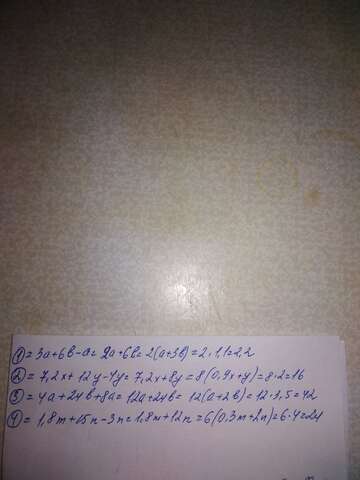 ① = 3a+6b-a= 2a+6b=2(a+3b)=2·1,1=2,2
② = 7,2x+12y-4y= 7,2x+8y=8(0,9x+y)=8·2=16
③ = 4a+24b+8a= 12a+24b= 12(a+2b)=12·3,5=42
④ = 1,8m+15n-3n=1,8m+12n=6(0,3m+2n)=6·4=24